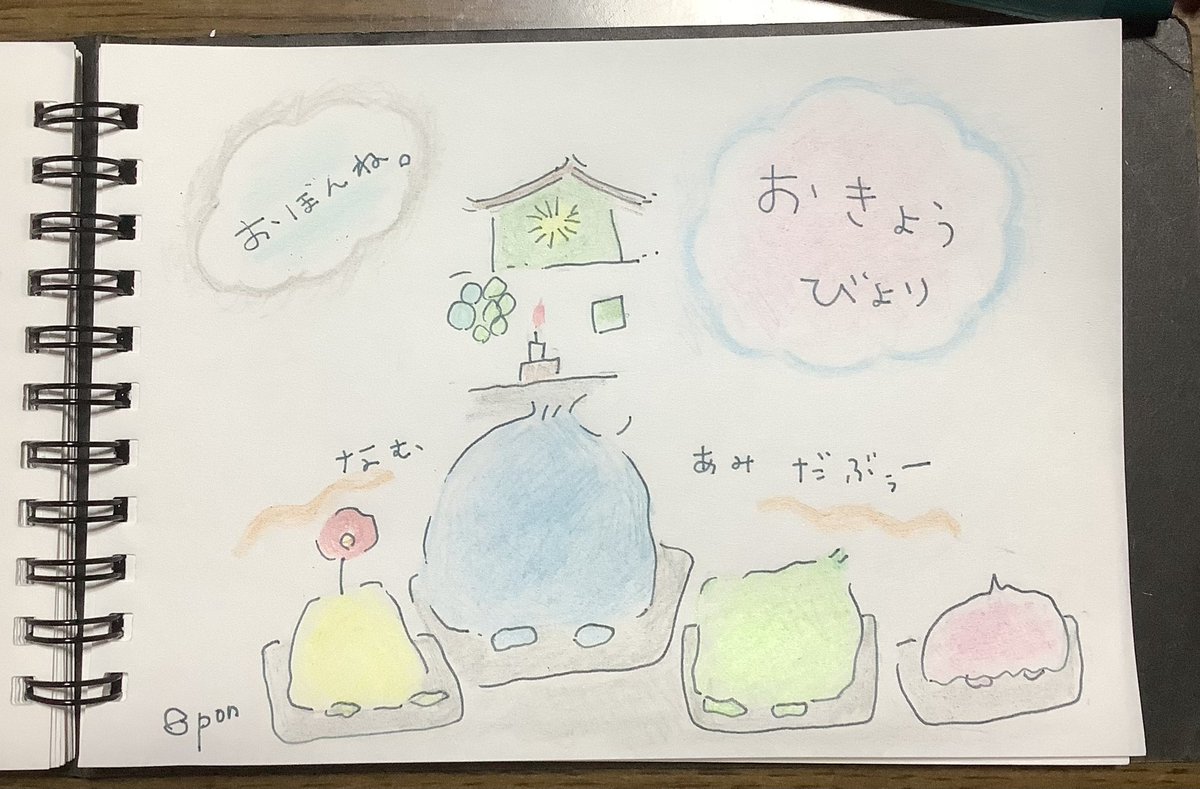 おぼんね。
おきょう
びより
なむ
あみ だぶぅー
8pon